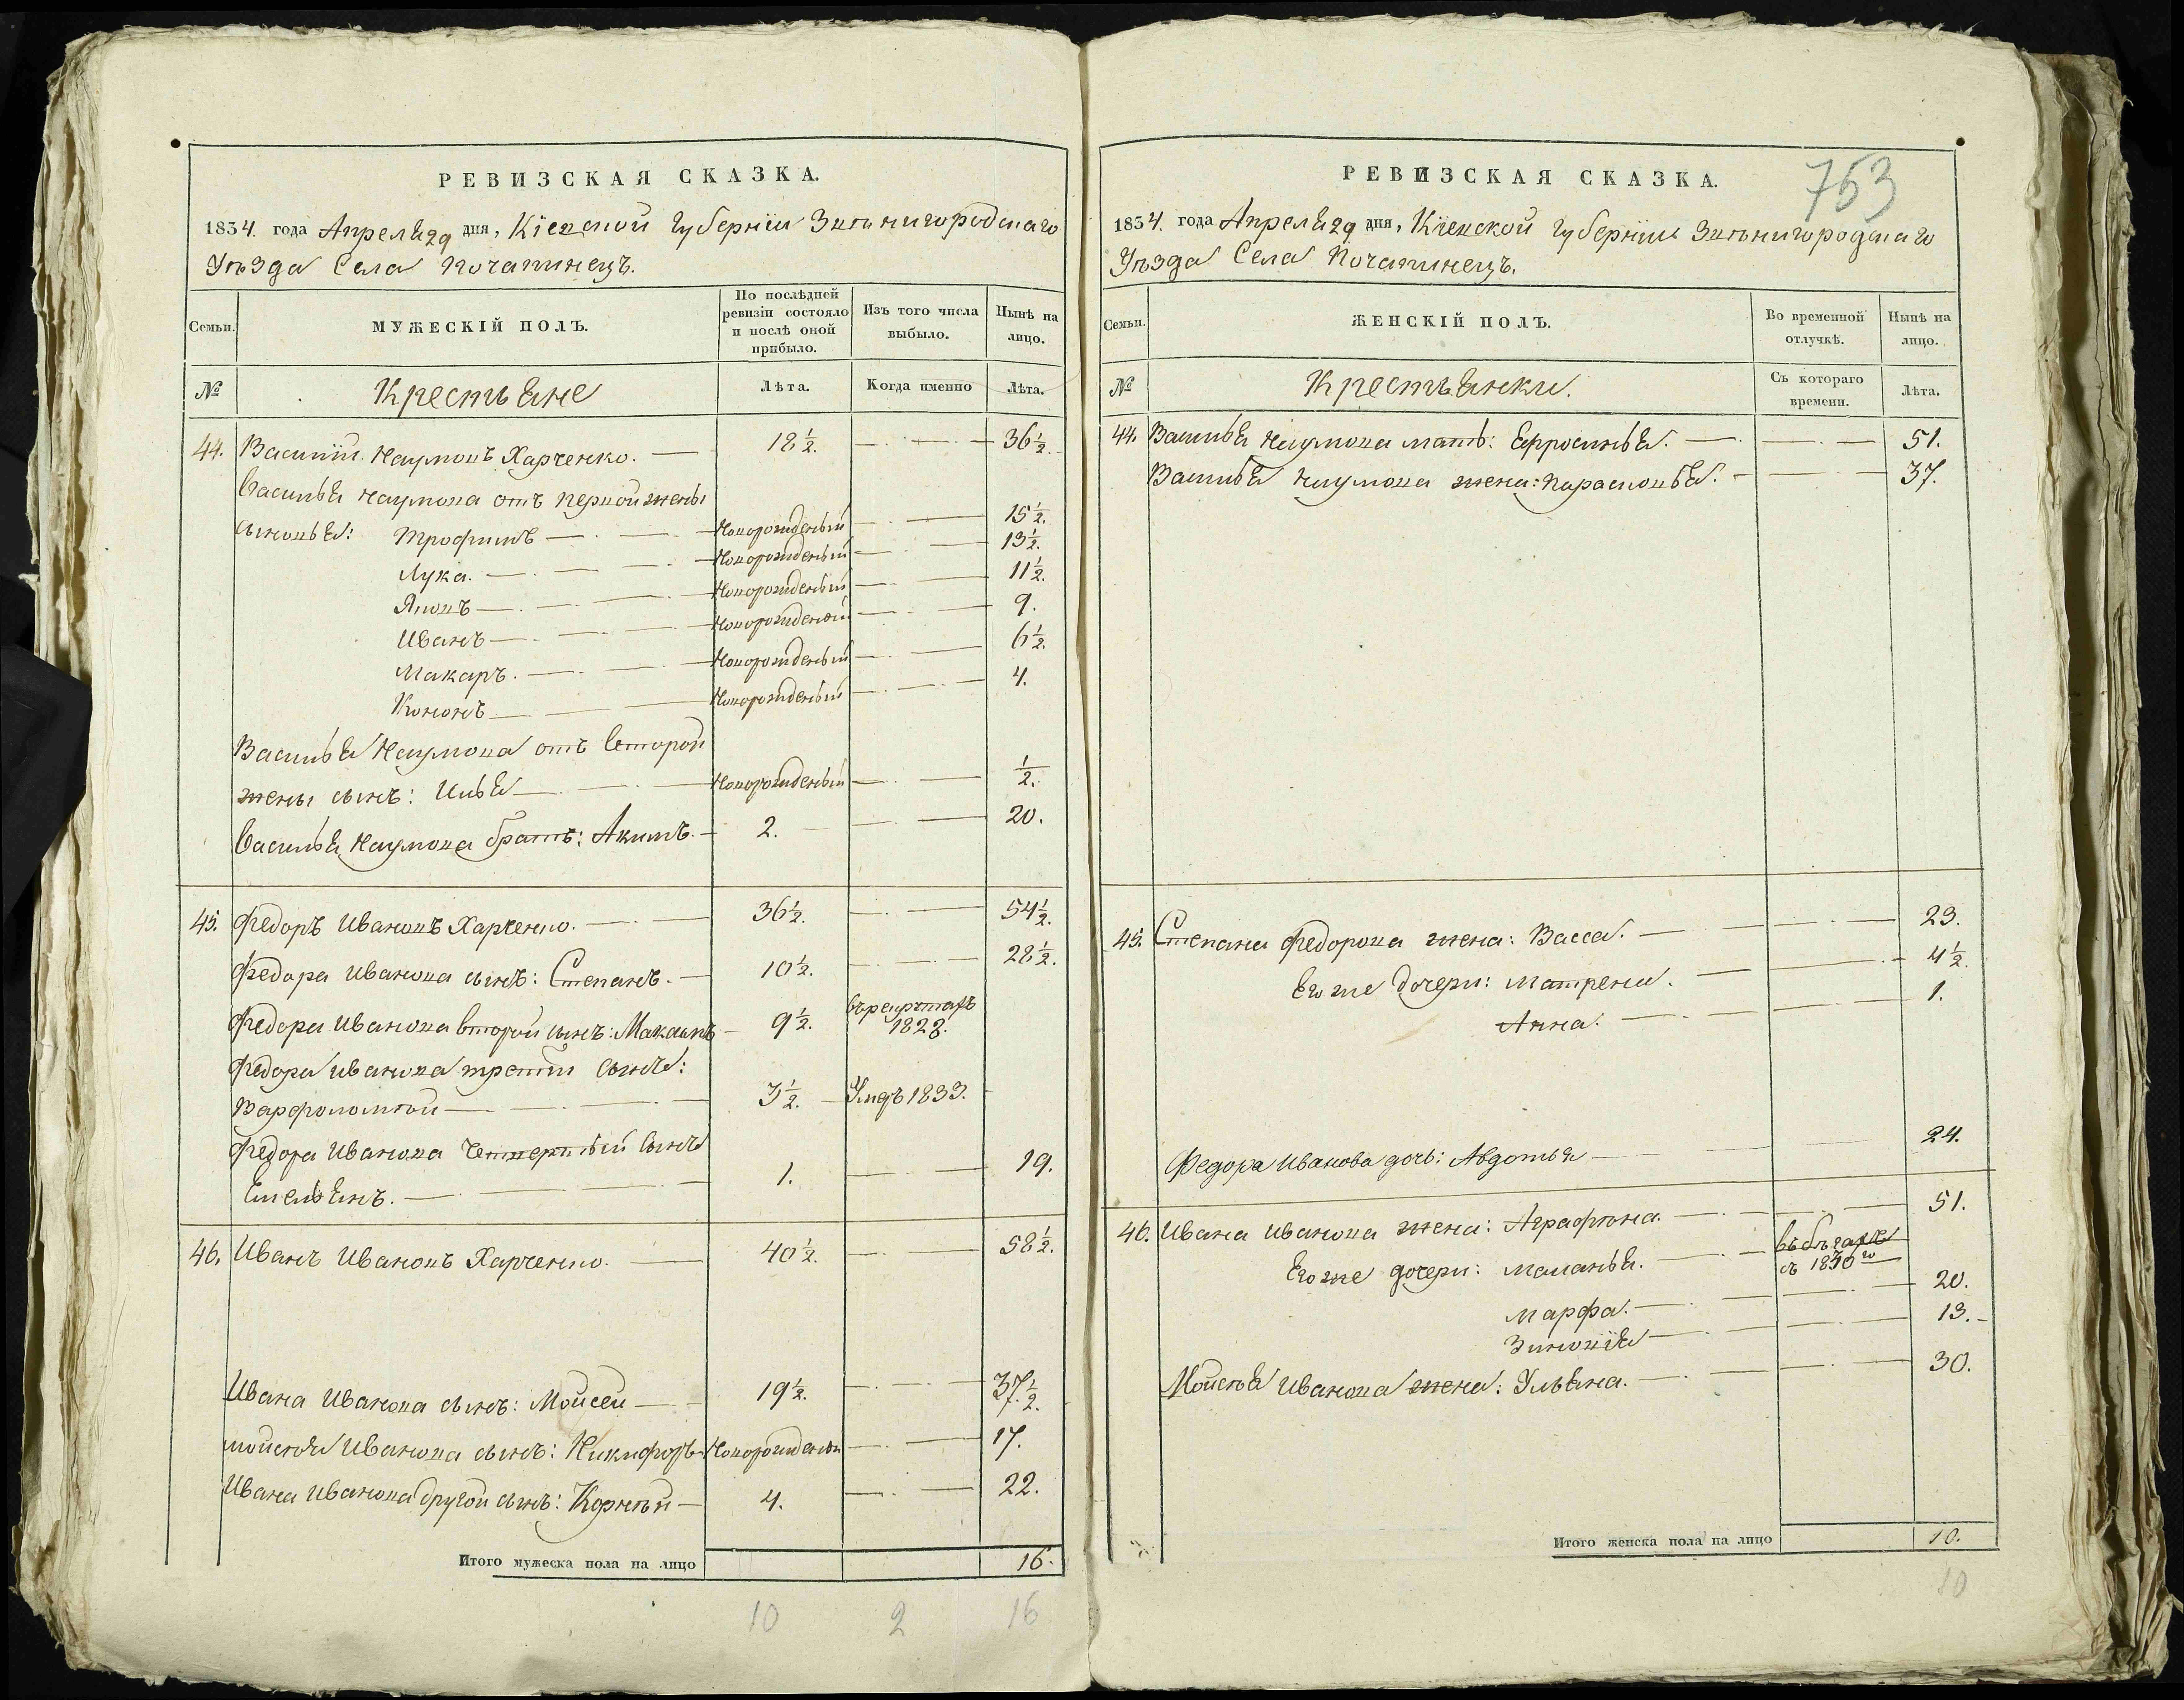 РЕВИЗСКАЯ СКАЗКА.
1834. года Апреля 29 дня, Кіевской Губерніи Звенигородскаго
Уѣзда Села Почапинецъ.
Семьи.
МУЖЕСКІЙ ПОЛЪ.
По послѣдней ревизіи состояло и послѣ оной прибыло.
Изъ того числа выбыло.
Нынѣ на лицо.
№ Крестьяне Лѣта. Когда именно Лѣта.
44. Василій Наумовъ Харченко. 18 1/2. 36 1/2.
Василья Наумова отъ первой жены
сыновья: Трофимъ новорожденый 15 1/2.
Лука. новорожденый 13 1/2.
Яковъ новорожденый 11 1/2.
Иванъ новорожденый 9.
Макаръ. новорожденый 6 1/2.
Кононъ новорожденый 4.
Василья Наумова отъ второй
жены сынъ: Илья новорожденый 1/2.
Василья Наумова братъ: Акимъ. 2. 20.
45. Федоръ Ивановъ Харченко. 36 1/2. 54 1/2.
Федора Иванова сынъ: Степанъ. 10 1/2. 28 1/2.
Федора Иванова второй сынъ: Максимъ 9 1/2. въ рекрутахъ 1828.
Федора Иванова третій сынъ:
Варфоломѣй 3 1/2. Умеръ 1833.
Федора Иванова четвертый сынъ
Емельянъ. 1. 19.
46. Иванъ Ивановъ Харченко. 40 1/2. 58 1/2.
Ивана Иванова сынъ: Мойсей 19 1/2. 37 1/2.
Мойсея Иванова сынъ: Никифоръ новорожденый 17.
Ивана Иванова другой сынъ: Корнѣй 4. 22.
Итого мужеска пола на лицо 16.
10 2 16
РЕВИЗСКАЯ СКАЗКА.
753
1834. года Апреля 29 дня, Кіевской Губерніи Звенигородскаго
Уѣзда Села Почапинецъ.
Семьи.
ЖЕНСКІЙ ПОЛЪ.
Во временной отлучкѣ.
Нынѣ на лицо.
№ Крестьянки. Съ котораго времени. Лѣта.
44. Василья Наумова мать: Ефросинья. 51.
Василья Наумова жена: Парасковья. 37.
45. Степана Федорова жена: Васса. 23.
Его же дочери: Матрена. 4 1/2.
Анна. 1.
Федора Иванова дочь: Авдотья 24.
46. Ивана Иванова жена: Аграфона. 51.
Его же дочери: Маланья. въ бѣгахъ съ 1830го
Марфа. 20.
Зиновія 13.
Мойсея Иванова жена: Ульяна. 30.
Итого женска пола на лицо 10.
10